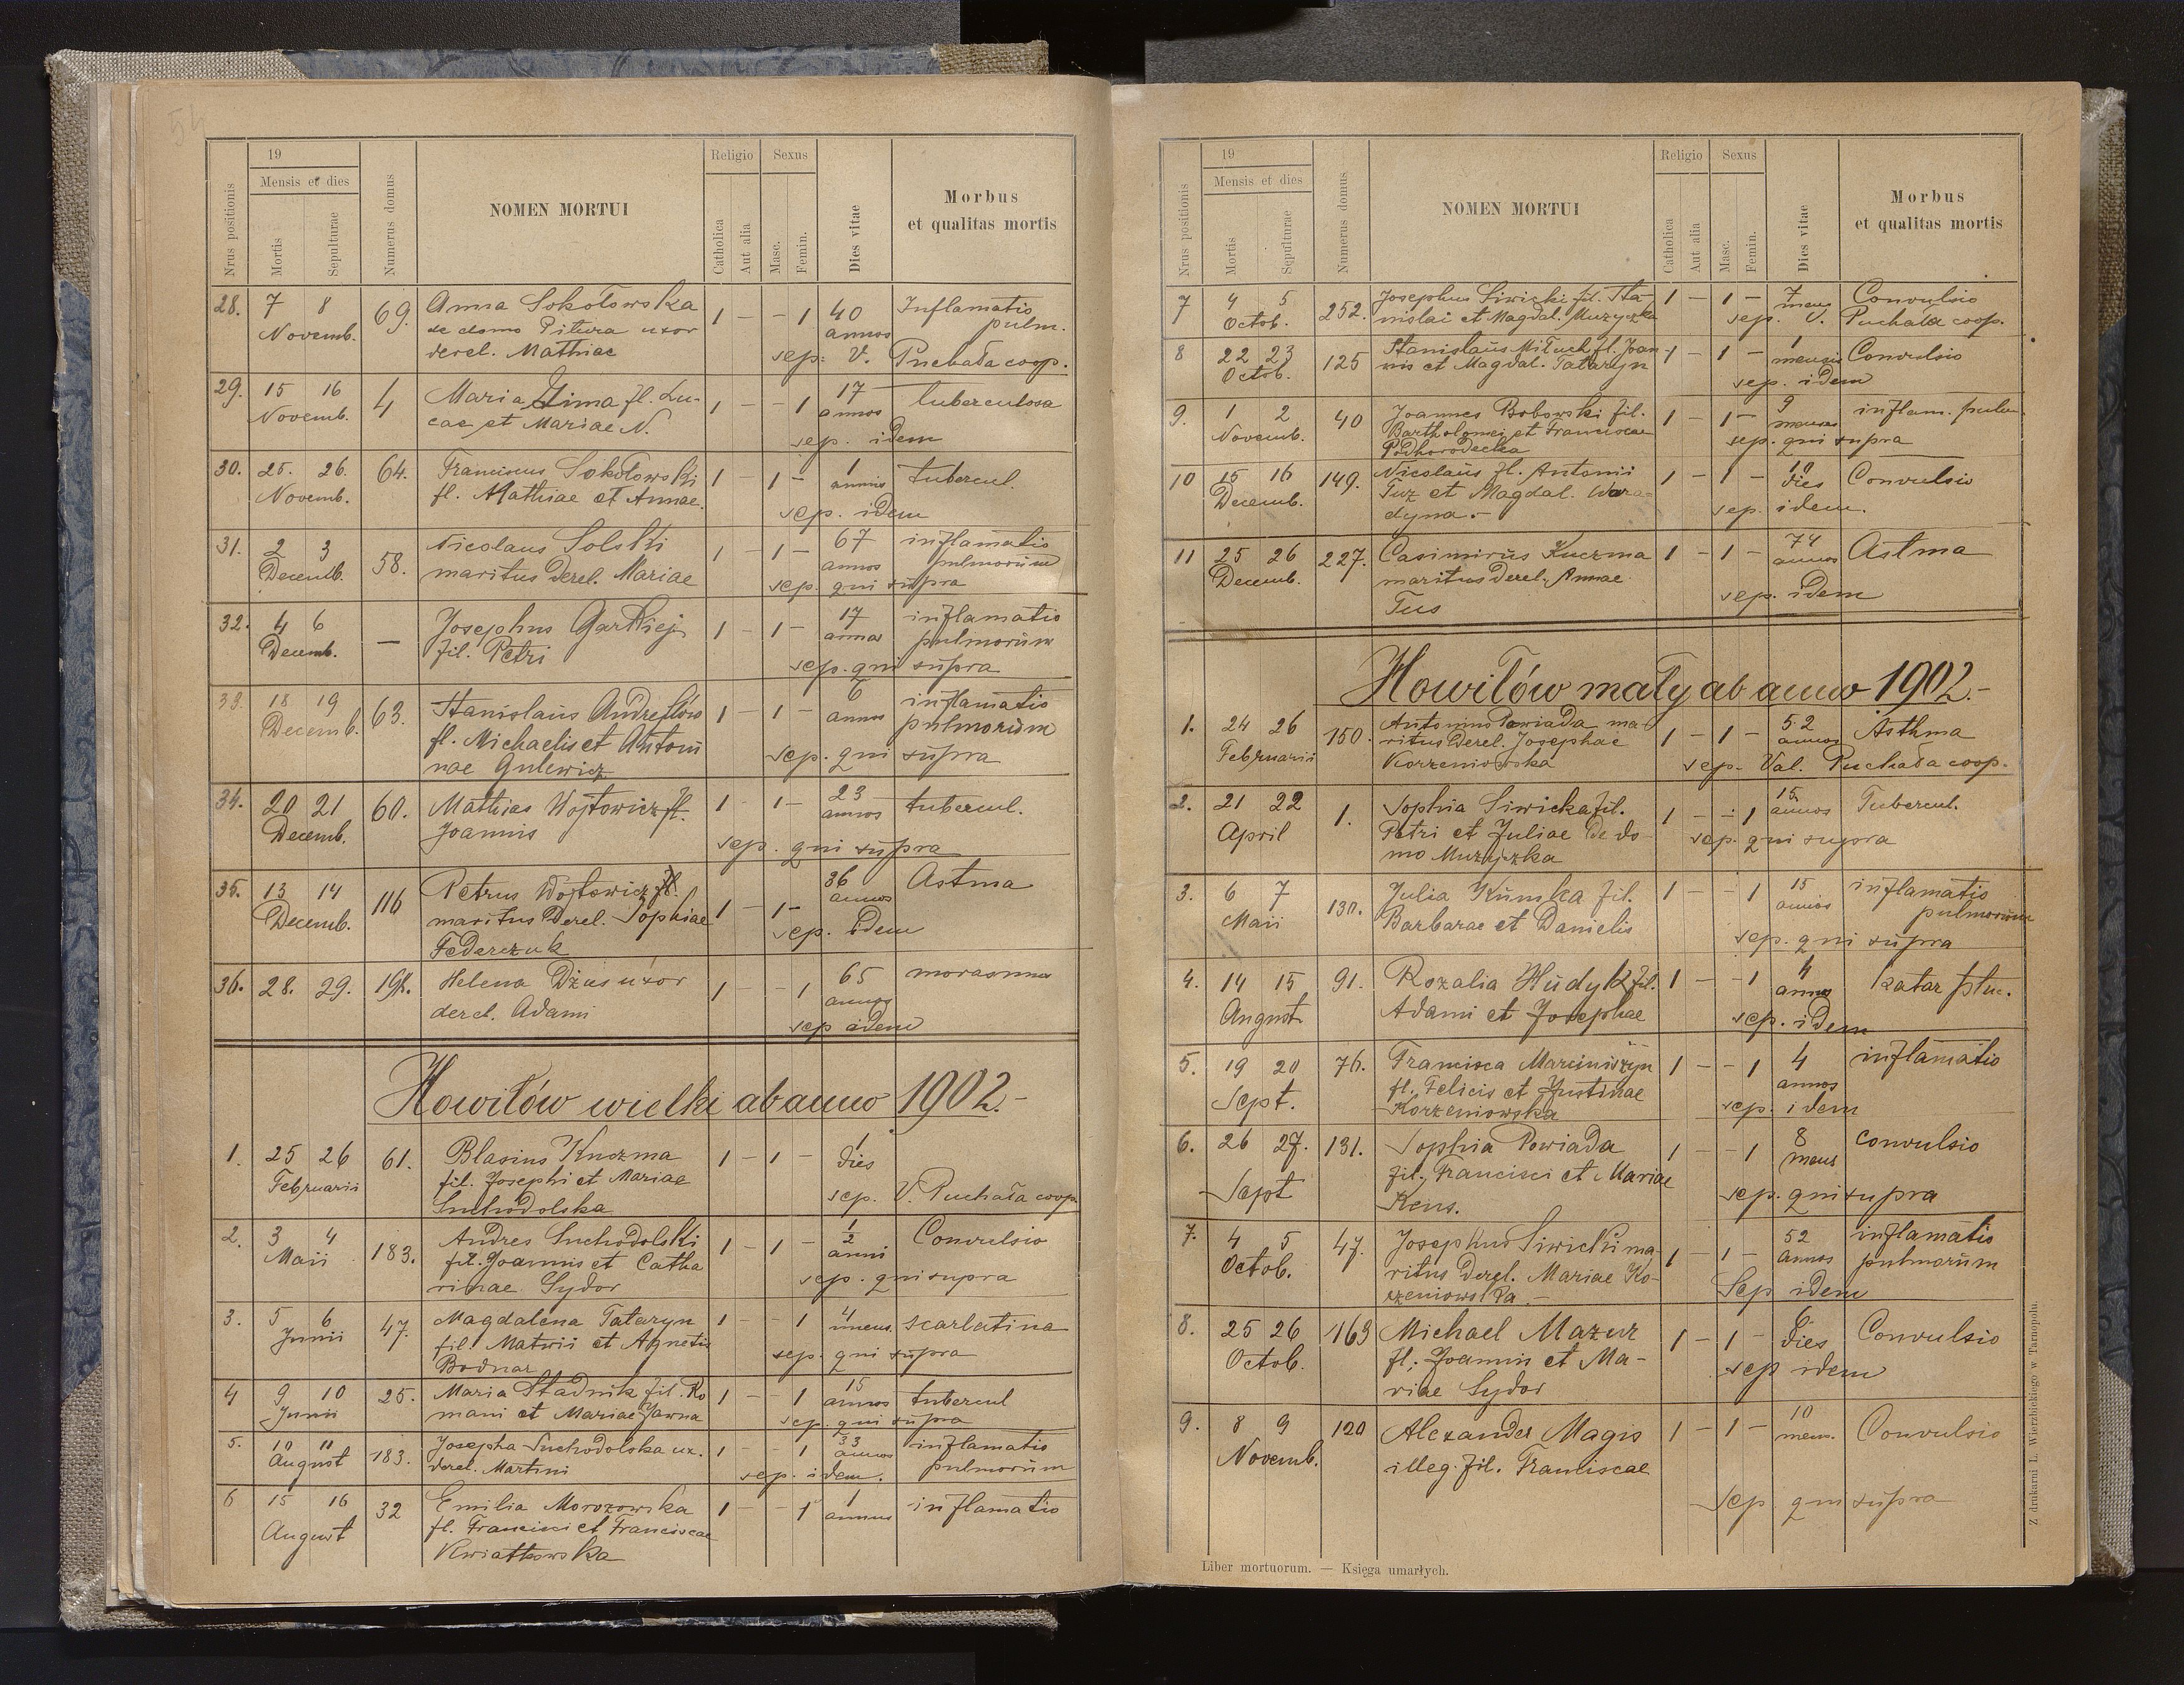 54
19
Mensis et dies
Nrus positionis
Mortis
Sepulturae
Numerus domus
NOMEN MORTUI
Religio
Catholica
Aut alia
Sexus
Masc.
Femin.
Dies vitae
Morbus
et qualitas mortis
28. 7 8 69. Anna Sokołowska 1 – – 1 40 Inflamatio
Novemb. de domo Pitura uxor annos pulm.
derel. Mathiae sep. V. Puchała coop.
29. 15 16 4 Maria Zima fl. Lu- 1 – – 1 17 tuberculosa
Novemb. cae et Mariae N. annos
sep. idem
30. 25. 26. 64. Franciscus Sokołowski 1 – 1 – 1 tubercul.
Novemb. fl. Mathiae et Annae. annus
sep. idem
31. 2 3 58. Nicolaus Solski 1 – 1 – 67 inflamatio
Decemb. maritus derel. Mariae annos pulmorum
sep. qui supra
32. 4 6 — Josephus 1 – 1 – 17 inflamatio
Decemb. fil. Petri annos pulmorum
sep. qui supra
33. 18 19 63. Stanislaus 1 – 1 – 6 inflamatio
Decemb. fl. Michaelis et Antoni annos pulmorum
nae Gulewicz sep. qui supra
34. 20 21 60. Mathias Wojtowicz fl. 1 – 1 – 23 tubercul.
Decemb. Joannis annos
sep. qui supra
35. 13 14 116 Petrus Wojtowicz fl. 1 – 1 – 36 Astma
Decemb. maritus derel. Sophiae annos
Federczuk sep. idem
36. 28. 29. Helena Dżus uxor 1 – – 1 65
derel. Adami annos
sep idem
Howiłów wielki ab anno 1902.-
1. 25 26 61. Blasius Kuczma 1 – 1 – 1
Februarii fil. Josephi et Mariae dies
Suchodolska sep. V. Puchała coop.
2. 3 4 183. Andres Suchodolski 1 – 1 – 1/2 Convulsio
Maii fil. Joannis et Catha anni
rinae Sydor sep. qui supra
3. 5 6 47. Magdalena Tataryn 1 – – 1 4 scarlatina
Junii fil. Matwii et Agnetis mens.
Bodnar sep. qui supra
4 9 10 25. Maria Stadnik fil. Ro 1 – – 1 15 tubercul
Junii mani et Mariae Jawna annos
sep. qui supra
5. 10 11 183. Josepha Suchodolska ux. 1 – – 1 33 inflamatio
August derel. Martini annos pulmorum
sep. idem.
6 15 16 32 Emilia Morozowska 1 – – 1 1 inflamatio
August fl. Francisci et Franciscae annus
Kwiatkowska
19
Mensis et dies
Nrus positionis
Mortis
Sepulturae
Numerus domus
NOMEN MORTUI
Religio
Catholica
Aut alia
Sexus
Masc.
Femin.
Dies vitae
Morbus
et qualitas mortis
7 4 5 252. Josephus Siwicki fil. Sta- 1 – 1 – 7 Convulsio
Octob. nislai et Magdal. Muzyczka mens
sep. V. Puchała coop.
8 22 23 125 Stanislaus fl. Joan 1 – 1 – 1 Convulsio
Octob. nis et Magdal. Tataryn mensis
sep. idem
9. 1 2 40 Joannes Bobowski fil. 1 – 1 – 9 inflam. pulm.
Novemb. Bartholomei et Franciscae menses
Podhorodecka sep. qui supra
10 15 16 149. Nicolaus fl. Antonii 1 – 1 – 10 Convulsio
Decemb. Tuz et Magdal. Wara- dies
dyna.- sep. idem.
11 25 26 227. Casimirus Kuczma 1 – 1 – 74 Astma
Decemb. maritus derel. Annae annos
Tus sep. idem
Howiłów mały ab anno 1902.-
1. 24 26 150. Antonius Powiada ma- 1 – 1 – 52 Asthma
Februarii ritus derel. Josephae annos
Korzeniowska sep. Val. Puchała coop.
2. 21 22 1. Sophia Siwicka fil. 1 – – 1 15 Tubercul.
April Petri et Juliae de do- annos
mo Muzyczka sep. qui supra
3. 6 7 130. Julia Kumka fil. 1 – – 1 15 inflamatio
Maii Barbarae et Danielis annos pulmorum
sep. qui supra
4. 14 15 91. Rozalia Hudyk fil. 1 – – 1 4 katar płuc.
August Adami et Josephae annos
sep. idem
5. 19 20 76. Francisca Marciniszyn 1 – – 1 4 inflamatio
Sept. fl. Felicis et Justinae annos
Korzeniowska sep. idem
6. 26 27. 131. Sophia Powiada 1 – – 1 8 convulsio
Sept fil. Francisci et Mariae mens
Kens. sep. qui supra
7. 4 5 47. Josephus Siwicki ma- 1 – 1 – 52 inflamatio
Octob. ritus derel. Mariae Ko- annos pulmorum
rzeniowska.- Sep idem
8. 25 26 163 Michael Mazur 1 – 1 – 6 Convulsio
Octob. fl. Joannis et Ma- dies
riae Sydor sep idem
9. 8 9 120 Alexander Magis 1 – 1 – 10 Convulsio
Novemb. illeg. fil. Franciscae mens.
Sep qui supra
Liber mortuorum. — Księga umarłych.
Z drukarni L. Wierzbickiego w Tarnopolu.